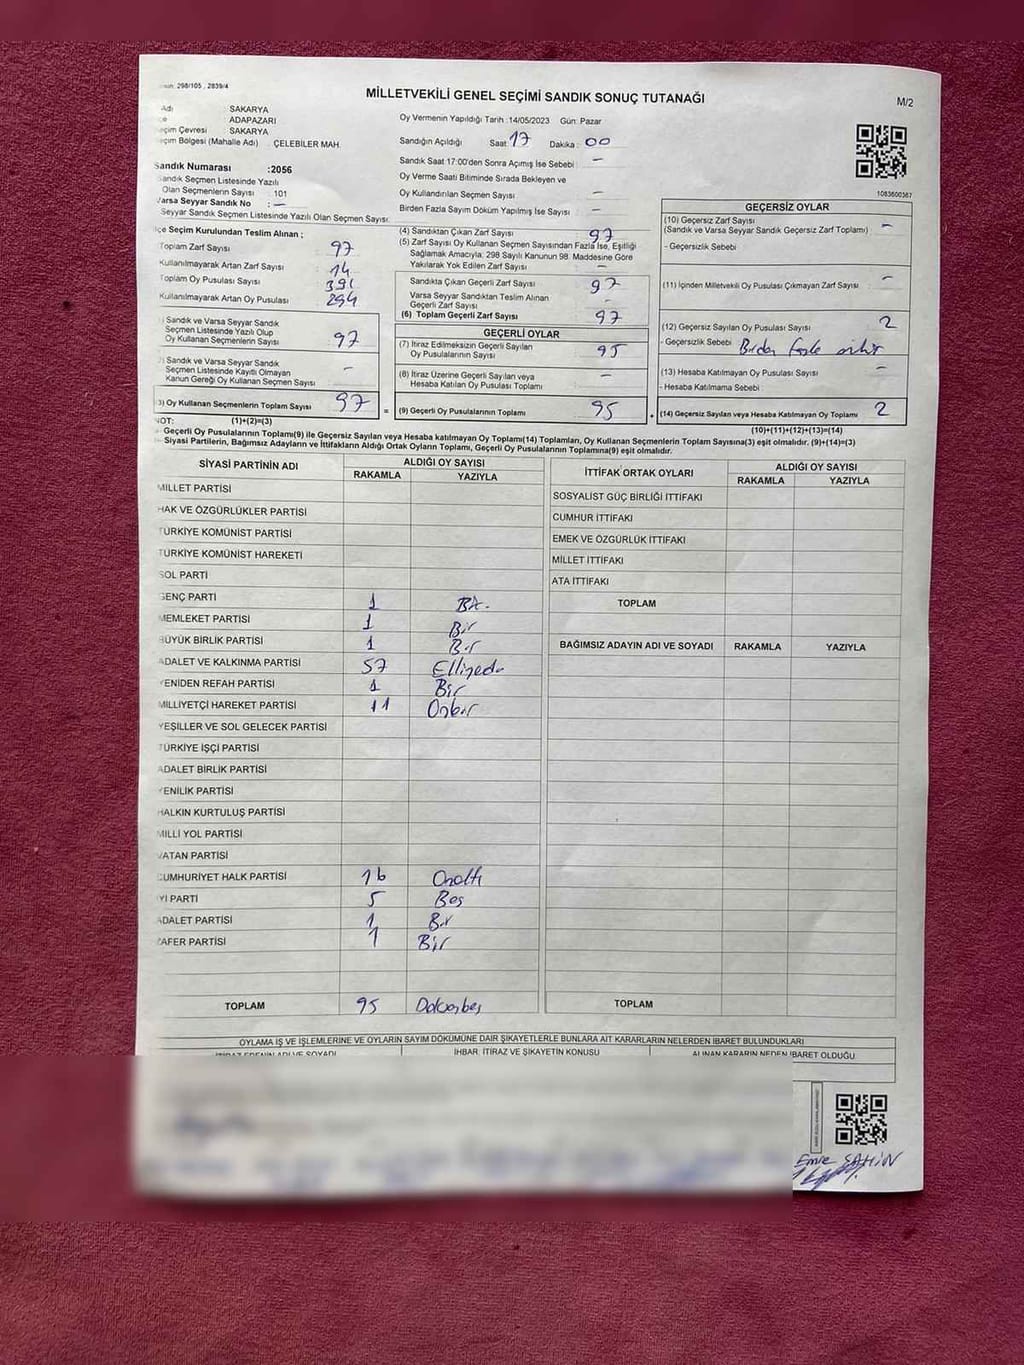 298/105 , 2839/4
MİLLETVEKİLİ GENEL SEÇİMİ SANDIK SONUÇ TUTANAĞI
M/2
Adı SAKARYA
ADAPAZARI
Seçim Çevresi SAKARYA
Seçim Bölgesi (Mahalle Adı) : ÇELEBİLER MAH.
Oy Vermenin Yapıldığı Tarih :14/05/2023 Gün: Pazar
Sandığın Açıldığı Saat: 17 Dakika: 00
Sandık Saat 17:00'den Sonra Açımış İse Sebebi : –
Oy Verme Saati Bitiminde Sırada Bekleyen ve
Oy Kullandırılan Seçmen Sayısı : –
Birden Fazla Sayım Döküm Yapılmış İse Sayısı : –
1083600367
Sandık Numarası :2056
Sandık Seçmen Listesinde Yazılı
Olan Seçmenlerin Sayısı : 101
Varsa Seyyar Sandık No : –
Seyyar Sandık Seçmen Listesinde Yazılı Olan Seçmen Sayısı:
İlçe Seçim Kurulundan Teslim Alınan ;
Toplam Zarf Sayısı 97
Kullanılmayarak Artan Zarf Sayısı 14
Toplam Oy Pusulası Sayısı 391
Kullanılmayarak Artan Oy Pusulası 294
Sandık ve Varsa Seyyar Sandık
Seçmen Listesinde Yazılı Olup
Oy Kullanan Seçmenlerin Sayısı 97
Sandık ve Varsa Seyyar Sandık
Seçmen Listesinde Kayıtlı Olmayan
Kanun Gereği Oy Kullanan Seçmen Sayısı –
(3) Oy Kullanan Seçmenlerin Toplam Sayısı 97
(4) Sandıktan Çıkan Zarf Sayısı 97
(5) Zarf Sayısı Oy Kullanan Seçmen Sayısından Fazla İse, Eşitliği
Sağlamak Amacıyla; 298 Sayılı Kanunun 98. Maddesine Göre
Yakılarak Yok Edilen Zarf Sayısı –
Sandıkta Çıkan Geçerli Zarf Sayısı 97
Varsa Seyyar Sandıktan Teslim Alınan
Geçerli Zarf Sayısı -
(6) Toplam Geçerli Zarf Sayısı 97
GEÇERLİ OYLAR
(7) İtiraz Edilmeksizin Geçerli Sayılan
Oy Pusulalarının Sayısı 95
(8) İtiraz Üzerine Geçerli Sayılan veya
Hesaba Katılan Oy Pusulası Toplamı –
= (9) Geçerli Oy Pusulalarının Toplamı 95
GEÇERSİZ OYLAR
(10) Geçersiz Zarf Sayısı
(Sandık ve Varsa Seyyar Sandık Geçersiz Zarf Toplamı) –
- Geçersizlik Sebebi
(11) İçinden Milletvekili Oy Pusulası Çıkmayan Zarf Sayısı –
(12) Geçersiz Sayılan Oy Pusulası Sayısı 2
- Geçersizlik Sebebi Birden fazla mühür
(13) Hesaba Katılmayan Oy Pusulası Sayısı –
- Hesaba Katılmama Sebebi
+ (14) Geçersiz Sayılan veya Hesaba Katılmayan Oy Toplamı 2
NOT: (1)+(2)=(3)
(10)+(11)+(12)+(13)=(14)
Geçerli Oy Pusulalarının Toplamı(9) ile Geçersiz Sayılan veya Hesaba katılmayan Oy Toplamı(14) Toplamları, Oy Kullanan Seçmenlerin Toplam Sayısına(3) eşit olmalıdır. (9)+(14)=(3)
Siyasi Partilerin, Bağımsız Adayların ve İttifakların Aldığı Ortak Oyların Toplamı, Geçerli Oy Pusulalarının Toplamına(9) eşit olmalıdır.
SİYASİ PARTİNİN ADI ALDIĞI OY SAYISI
RAKAMLA YAZIYLA
MİLLET PARTİSİ
HAK VE ÖZGÜRLÜKLER PARTİSİ
TÜRKİYE KOMÜNİST PARTİSİ
TÜRKİYE KOMÜNİST HAREKETİ
SOL PARTİ
GENÇ PARTİ 1 Bir.
MEMLEKET PARTİSİ 1 Bir
BÜYÜK BİRLİK PARTİSİ 1 Bir
ADALET VE KALKINMA PARTİSİ 57 Elliyedi
YENİDEN REFAH PARTİSİ 1 Bir
MİLLİYETÇİ HAREKET PARTİSİ 11 Onbir
YEŞİLLER VE SOL GELECEK PARTİSİ
TÜRKİYE İŞÇİ PARTİSİ
ADALET BİRLİK PARTİSİ
YENİLİK PARTİSİ
HALKIN KURTULUŞ PARTİSİ
MİLLİ YOL PARTİSİ
VATAN PARTİSİ
CUMHURİYET HALK PARTİSİ 16 Onaltı
İYİ PARTİ 5 Beş
ADALET PARTİSİ 1 Bir
ZAFER PARTİSİ 1 Bir
TOPLAM 95 Doksanbeş
İTTİFAK ORTAK OYLARI ALDIĞI OY SAYISI
RAKAMLA YAZIYLA
SOSYALİST GÜÇ BİRLİĞİ İTTİFAKI
CUMHUR İTTİFAKI
EMEK VE ÖZGÜRLÜK İTTİFAKI
MİLLET İTTİFAKI
ATA İTTİFAKI
TOPLAM
BAĞIMSIZ ADAYIN ADI VE SOYADI RAKAMLA YAZIYLA
TOPLAM
OYLAMA İŞ VE İŞLEMLERİNE VE OYLARIN SAYIM DÖKÜMÜNE DAİR ŞİKAYETLERLE BUNLARA AİT KARARLARIN NELERDEN İBARET BULUNDUKLARI
İTİRAZ EDENİN ADI VE SOYADI İHBAR, İTİRAZ VE ŞİKAYETİN KONUSU ALINAN KARARIN NEDEN İBARET OLDUĞU
Emre ŞAHİN